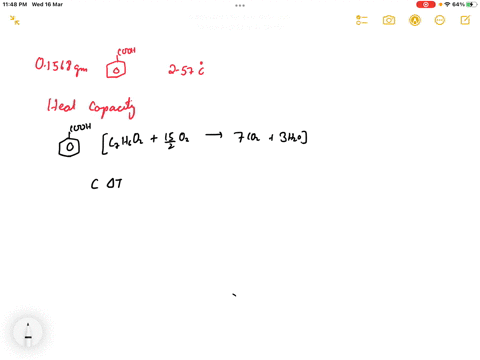 11:48 PM Wed 16 Mar
64%
COOH
0.1568 gm 2.57°C
Heat Capacity
COOH
[C₇H₆O₂ + 15/2 O₂ → 7CO₂ + 3H₂O]
C ΔT